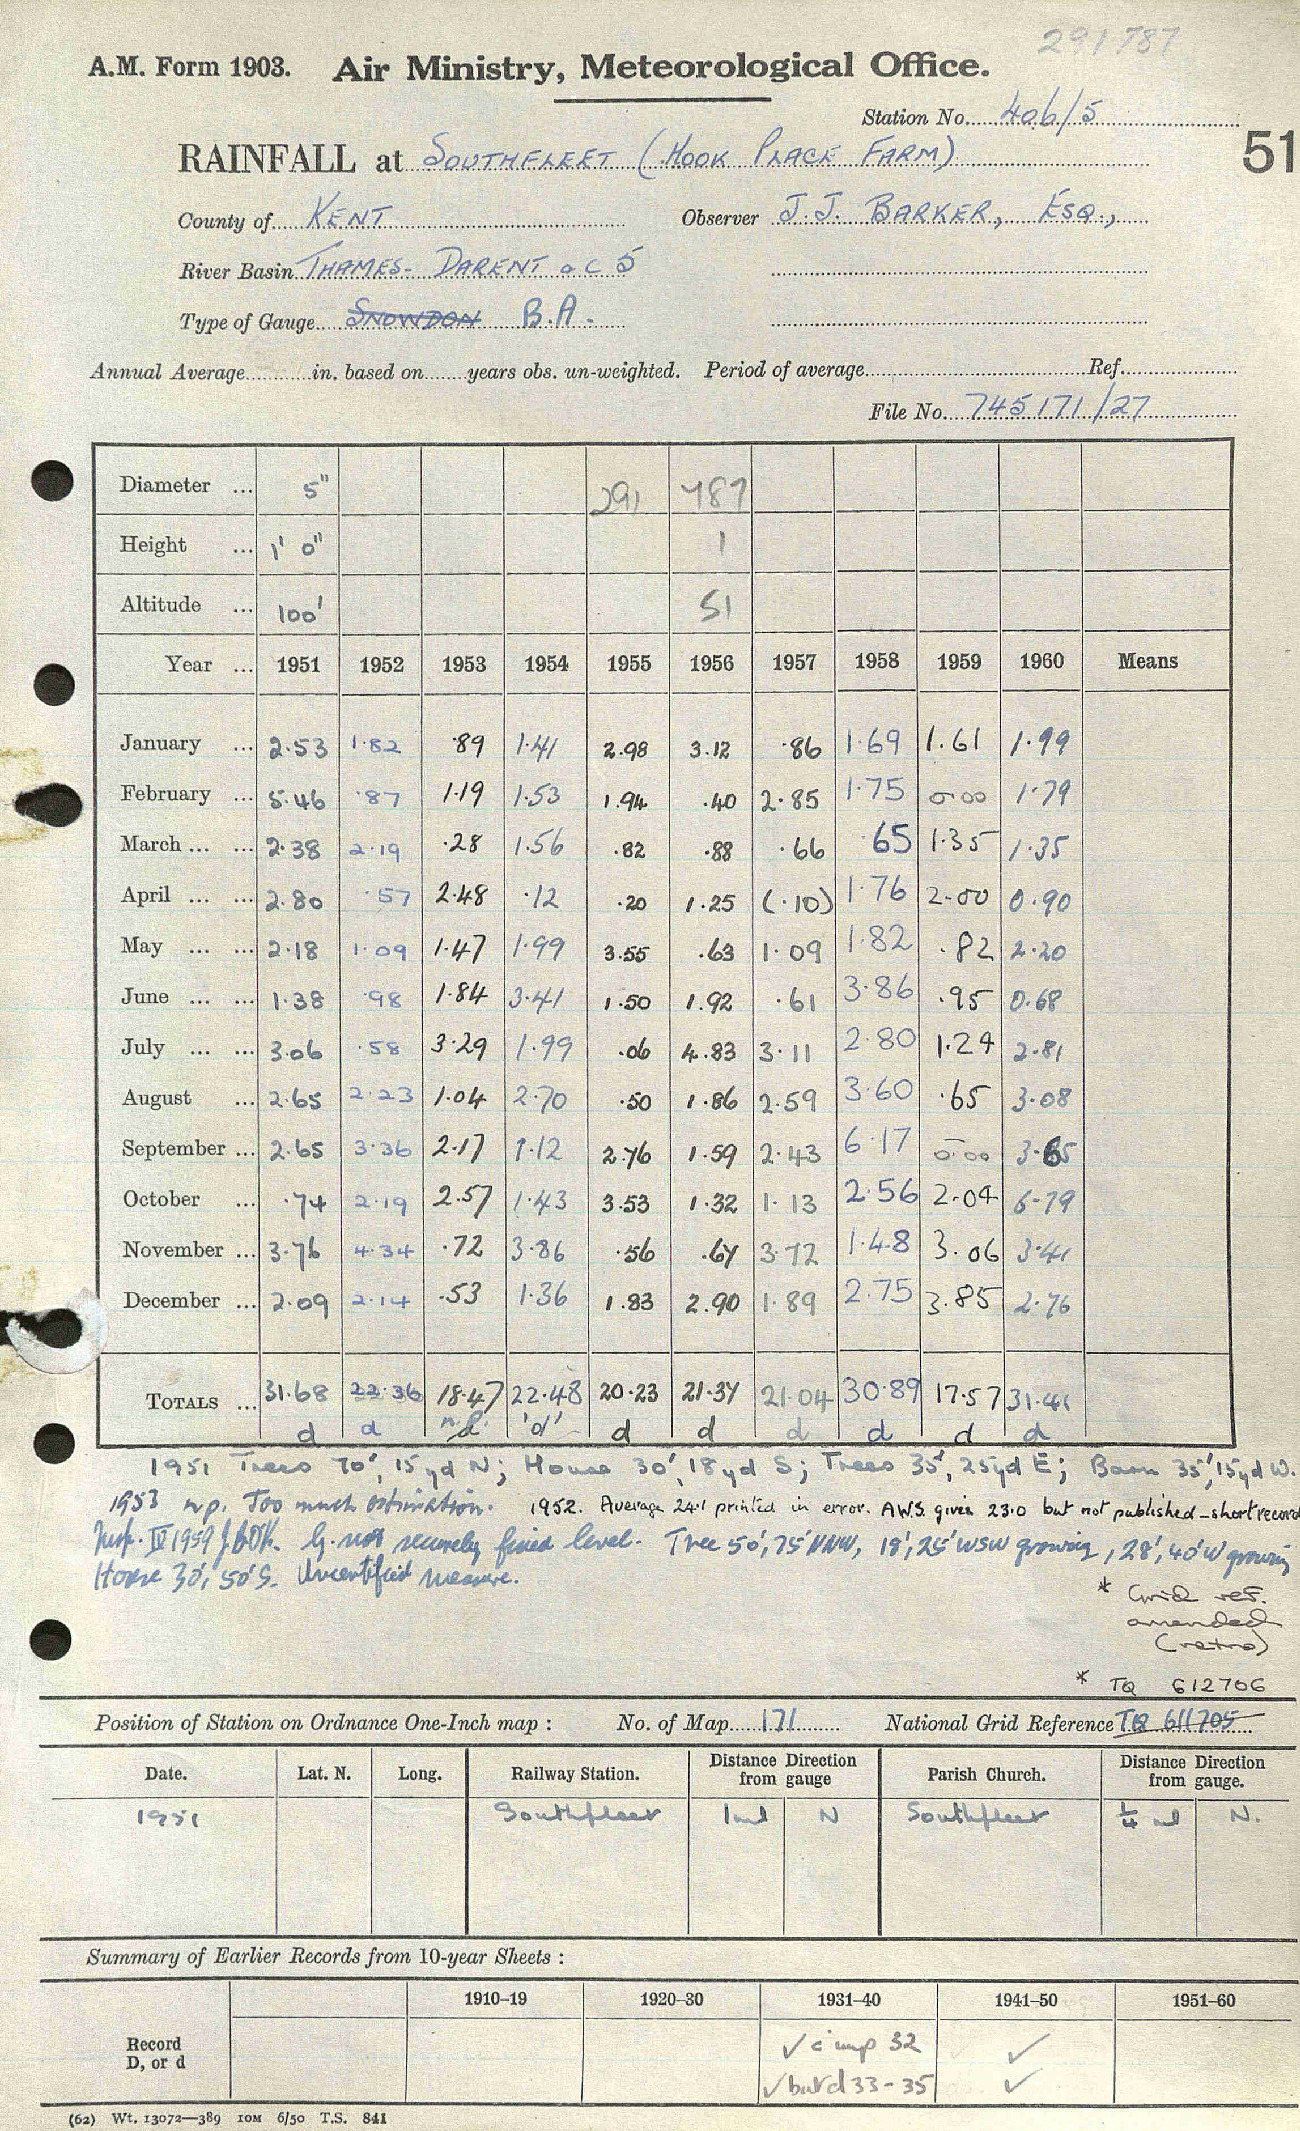 291787
A.M. Form 1903. Air Ministry, Meteorological Office.
Station No. 406/5
51
RAINFALL at SOUTHFLEET (HOOK PLACE FARM)
County of KENT Observer J.J. BARKER, ESQ.,
River Basin THAMES - DARENT a c 5
Type of Gauge SNOWDON B.A.
Annual Average in. based on years obs. un-weighted. Period of average Ref.
File No. 745171/27
Diameter ... 5" 291 787
Height ... 1' 0" 1
Altitude ... 100' 51
Year ... 1951 1952 1953 1954 1955 1956 1957 1958 1959 1960 Means
January ... 2.53 1.82 .89 1.41 2.98 3.12 .86 1.69 1.61 1.99
February ... 5.46 .87 1.19 1.53 1.94 .40 2.85 1.75 0.00 1.79
March ... ... 2.38 2.19 .28 1.56 .82 .88 .66 .65 1.35 1.35
April ... ... 2.80 .57 2.48 .12 .20 1.25 (.10) 1.76 2.00 0.90
May ... ... 2.18 1.09 1.47 1.99 3.55 .63 1.09 1.82 .82 2.20
June ... ... 1.38 .98 1.84 3.41 1.50 1.92 .61 3.86 .95 0.68
July ... ... 3.06 .58 3.29 1.99 .06 4.83 3.11 2.80 1.24 2.81
August ... 2.65 2.23 1.04 2.70 .50 1.86 2.59 3.60 .65 3.08
September ... 2.65 3.36 2.17 1.12 2.76 1.59 2.43 6.17 0.00 3.65
October ... .74 2.19 2.57 1.43 3.53 1.32 1.13 2.56 2.04 6.79
November ... 3.76 4.34 .72 3.86 .56 .67 3.72 1.48 3.06 3.41
December ... 2.09 2.14 .53 1.36 1.83 2.90 1.89 2.75 3.85 2.76
TOTALS ... 31.68 22.36 18.47 22.48 20.23 21.37 21.04 30.89 17.57 31.41
d d n.p. 'd' d d d d d d
1951 Trees 70', 15yd N; House 30', 18yd S; Trees 35', 25yd E; Barn 35', 15yd W.
1953 n.p. Too much estimation. 1952. Average 24.1 printed in error. AWS gives 23.0 but not published - short record
Insp. IV 1959 G. not securely fixed level. Tree 50', 75' NNW, 18', 25' WSW growing, 28', 40' W growing
House 30', 50' S. Uncertified measure.
* Grid ref.
amended
(retro)
* TQ 612706
Position of Station on Ordnance One-Inch map : No. of Map 171 National Grid Reference TQ 611705
Date. Lat. N. Long. Railway Station. Distance Direction from gauge Parish Church. Distance Direction from gauge.
1951 Southfleet 1ml N Southfleet 1/4 ml N.
Summary of Earlier Records from 10-year Sheets :
1910–19 1920–30 1931–40 1941–50 1951–60
Record
D, or d
✓ c imp 32 ✓
✓ but d 33-35 ✓
(62) Wt. 13072—389 IOM 6/50 T.S. 841